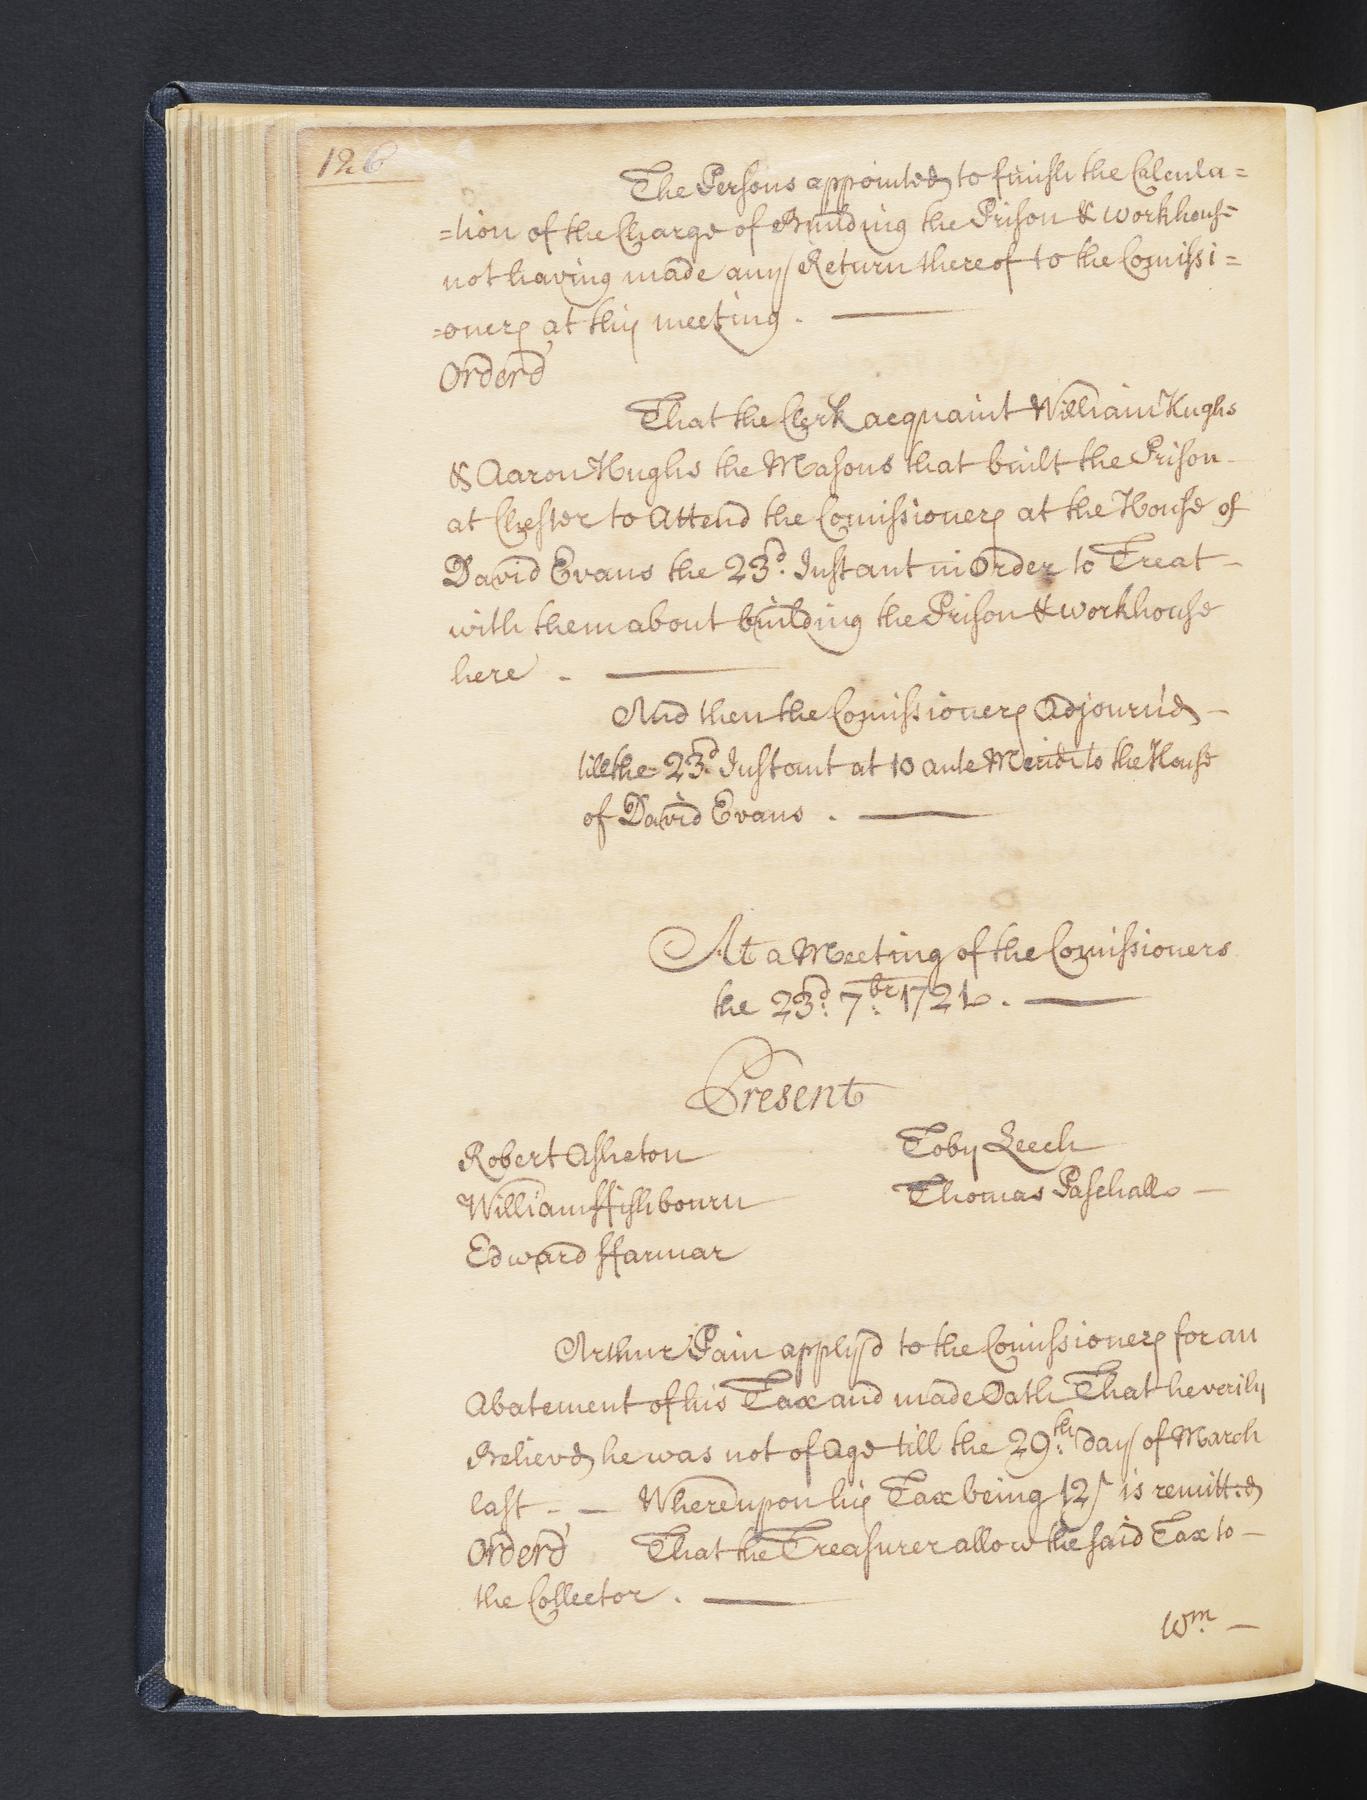 126
The Persons appointed to finish the Calcula=
=tion of the Charge of Building the Prison & workhouse
not having made any Return thereof to the Comissi=
=oners at this meeting . —
Orderd
That the Clerk acquaint William Hughs
& Aaron Hughs the Masons that built the Prison
at Chester to Attend the Comissioners at the House of
David Evans the 23d. Instant in Order to Treat —
with them about building the Prison & workhouse
here - —
And then the Comissioners Adjourn'd —
till the 23d. Instant at 10 ante Merid: to the House
of David Evans . —
At a Meeting of the Comissioners
the 23d. 7br. 1721 . —
Present
Robert Asheton
Toby Leech
William ffishbourn
Thomas Paschall —
Edward ffarmar
Arthur Pain apply'd to the Comissioners for an
Abatement of his Tax and made Oath That he verily
Believed he was not of Age till the 29th. day of March
last - — Whereupon his Tax being 12s is remitted
Order'd That the Treasurer allow the said Tax to —
the Collector . —
Wm. —